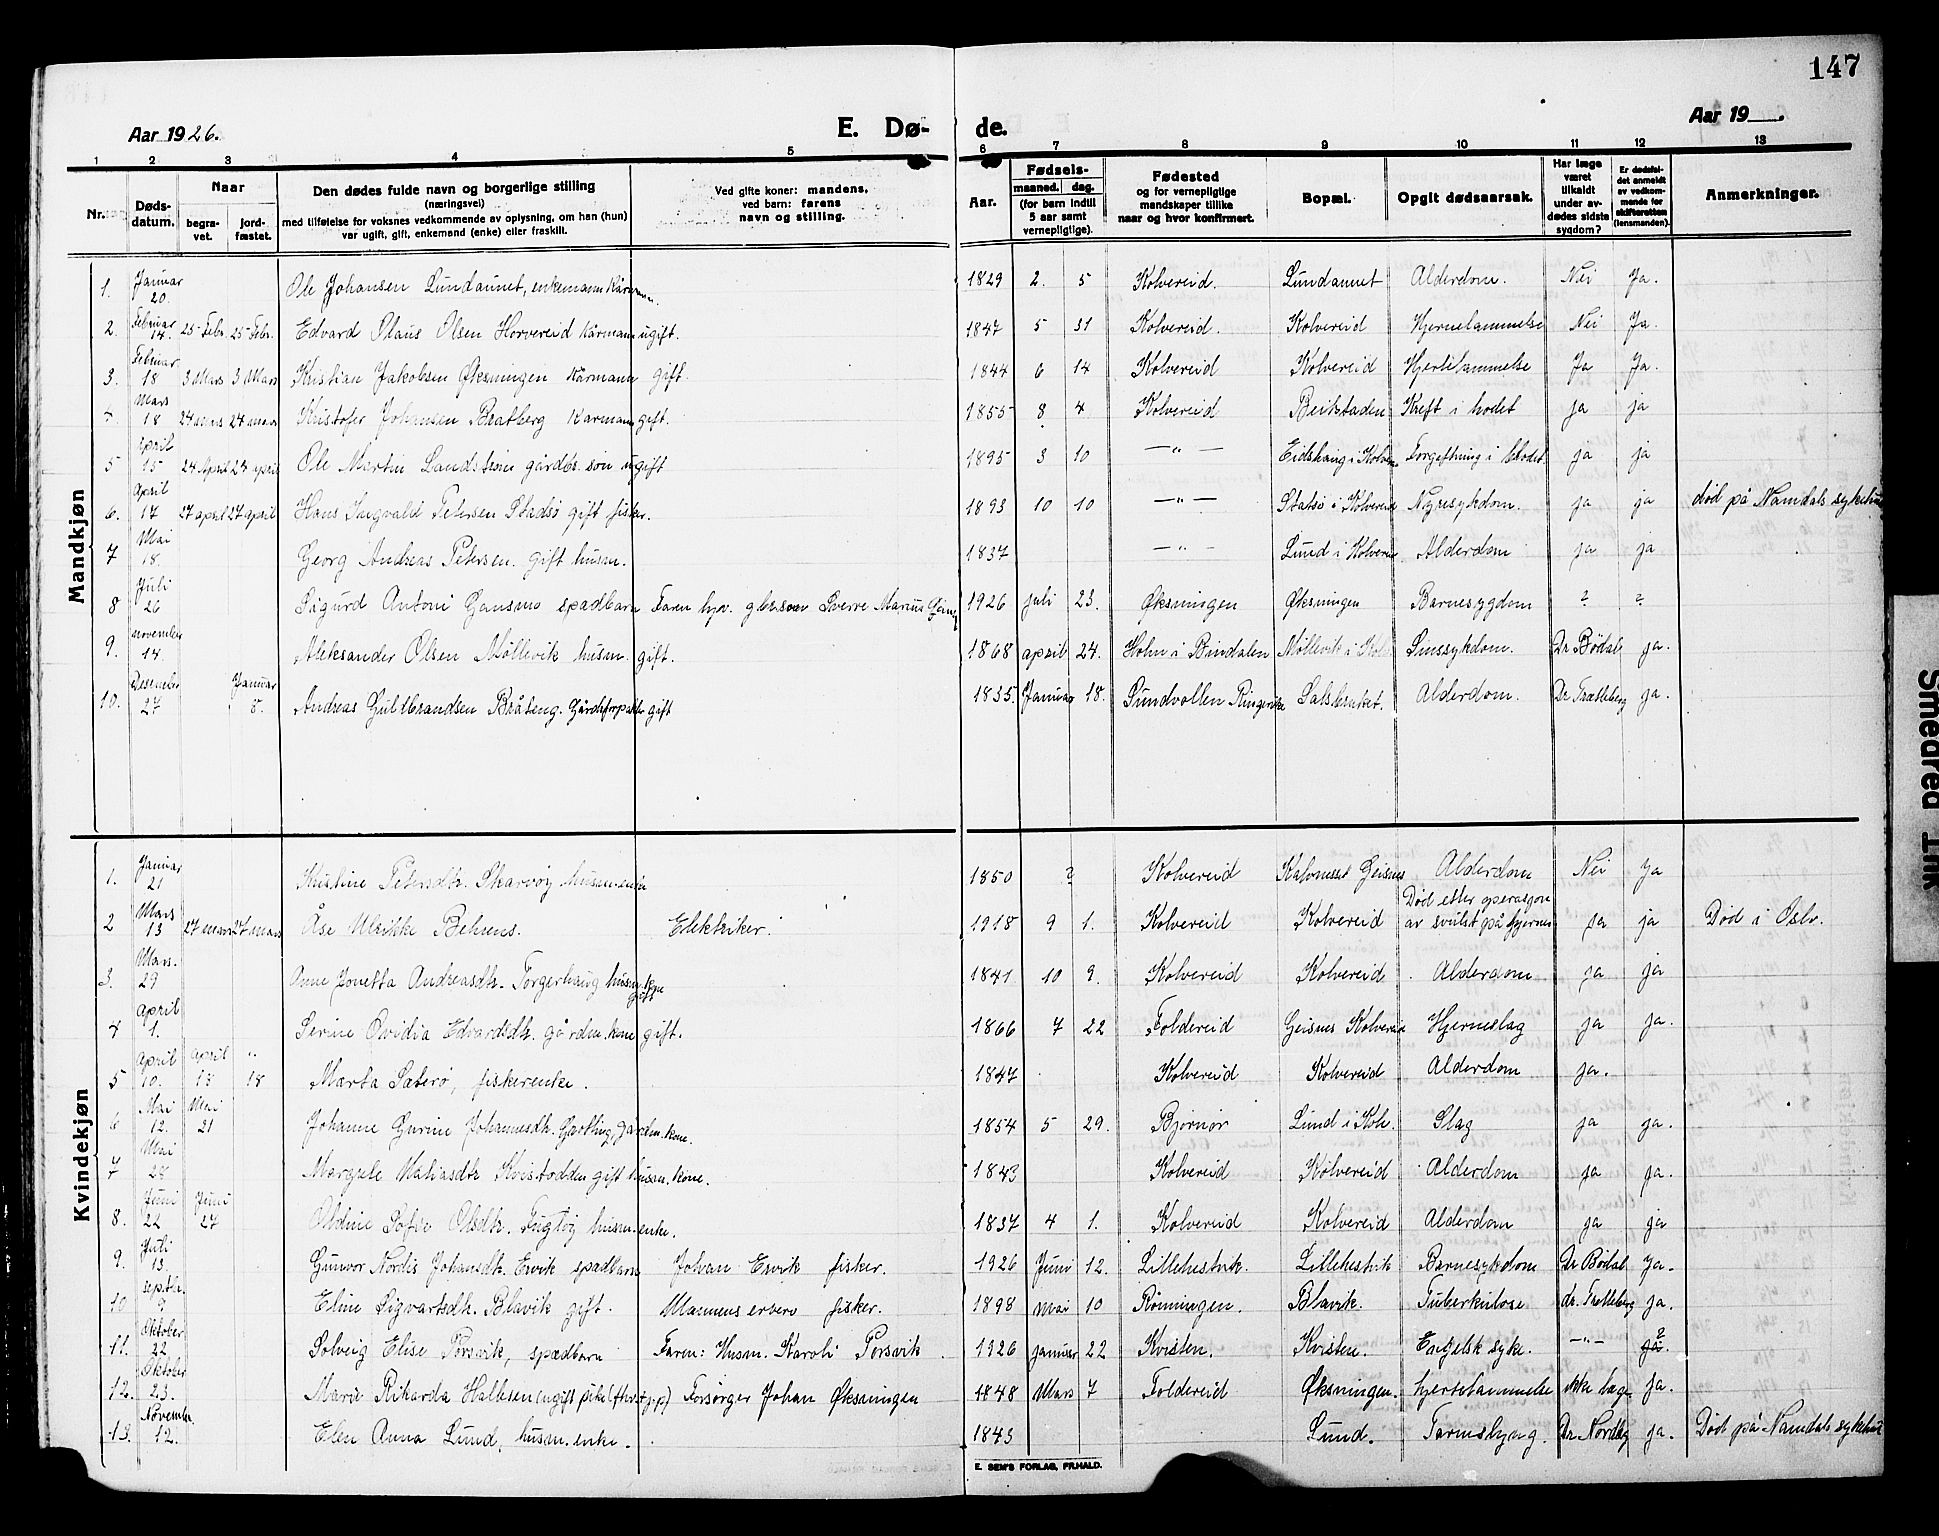 147
Aar 1926.
E. Dø- de.
Aar 19
1 2 3 4 5 6 7 8 9 10 11 12 13
Nr.
Døds-datum.
Naar
begra-vet.
jord-fæstet.
Den dødes fulde navn og borgerlige stilling
(næringsvei)
med tilføielse for voksnes vedkommende av oplysning, om han (hun)
var ugift, gift, enkemand (enke) eller fraskill.
Ved gifte koner: mandens,
ved barn: farens
navn og stilling.
Aar.
Fødsels-
maaned. dag.
(for barn indtil
5 aar samt
vernepligtige).
Fødested
og for vernepligtige
mandskaper tillike
naar og hvor konfirmert.
Bopæl.
Opgit dødsaarsak.
Har læge
været
tilkaldt
under av-
dødes sidste
sygdom?
Er dødsfal-
det anmeldt
av vedkom-
mende for
skifteretten
(lensmanden).
Anmerkninger.
Mandkjøn
1. Januar 20. Ole Johansen Lundaunet, enkemann Kårmann. 1829 2. 5 Kolvereid. Lundaunet Alderdom. Nei Ja.
2. Februar 14. 25 Febr. 25 Febr. Edvard Olaus Olsen Horvereid Kårmann ugift. 1847 5 31 Kolvereid. Kolvereid Hjernelammelse Nei Ja.
3. Februar 18 3 Mars 3 Mars Kristian Jakobsen Øksningen Kårmann gift. 1844 6 14 Kolvereid Kolvereid Hjertelammelse Ja Ja.
4. Mars 18 24 mars 24 mars Kristofer Johansen Bratberg Karmann gift. 1855 8 4 Kolvereid Beikstaden Kreft i hodet ja ja
5 April 15 24 April 24 april Ole Martin Landstrøm gårdbr. søn ugift 1895 3 10 — " — Eidshaug i Kolver. Forgiftning i blodet. ja ja
6. April 17 27 april 27 april Hans Ingvald Petersen Stadsø gift fisker. 1893 10 10 — " — Statsø i Kolvereid Nyresykdom. ja ja død på Namdals sykehus
7 Mai 18. Georg Andreas Petersen. gift husm. 1837 — " — Lund i Kolverei Alderdom ja ja
8 Juli 26 Sigurd Antoni Gansmo spadbarn Faren Sverre Marius 1926 juli 23. Øksningen Øksningen Barnesygdom ? ?
9. november 14. Aleksander Olsen Møllevik husm. gift. 1868 april 24. Holm i Bindalen Møllevik i Kol. Sinssykdom. Dr Bødal ja.
10. Desember 27 Januar 8. Andreas Gullbrandsen Bråteng. Gårdsforpakter gift 1835. Januar 18. Sundvollen Ringerike Salsbruket. Alderdom. Dr Trætteberg ja.
Kvindekjøn
1. Januar 21 Kristine Petersdtr. Skarvøy husm. enke 1850 ? Kolvereid Kalvnesset Geisnes Alderdom Nei Ja
2 Mars 13 27 mars 27 mars Åse Ulrikke Behrens. Elektriker. 1918 9 1. Kolvereid Kolvereid Død etter operasjon av svulst på hjernen ja ja Død i Oslo.
3. Mars. 29 Anne Jonetta Andreasdtr. Torgerhaug husm. kone gift 1841 10 9. Kolvereid Kolvereid Alderdom ja ja
4 april 1. Serine Ovidia Edvardsdtr. gårdm. kone gift. 1866 7 22 Foldereid Geisnes Kolvereid Hjerneslag ja ja.
5 April 10. april 18 " 18 Marta Saterø, fiskerenke. 1847 Kolvereid Kolvereid Alderdom ja.
6 Mai 12. Mai 21 Johanne Gurine Johannesdtr. Garthing, gårdm. kone. 1854 5 29. Bjørnør Lund i Kolv. Slag ja ja.
7 Mai 28 Margrete Matiasdtr Kvistodden gift husm. kone. 1843 Kolvereid Kolvereid Alderdom ja ja.
8. Juni 22 Juni 27 Oldine Sofie Olsdtr. Fugløy husm. enke. 1837 4 1. Kolvereid Kolvereid Alderdom ja ja
9. Juli 13. Gunvor Nordis Johansdtr. Ervik spadbarn Johan Ervik fisker. 1926 Juni 12. Lillehestvik. Lillehestvik Barnesykdom Dr Bødal Ja.
10 septbr. 9 Eline Sigvartsdtr. Blavik gift. Mannens erverv fisker. 1898 mai 10 Rønningen. Blavik. Tuberkulose dr. Tratteberg ja.
11. Oktober 22 Solveig Elise Porsvik, spædbarn Faren: Husm. Karoli Porsvik 1926 januar 22 Kvisten. Kvisten. Engelsk syke. — " — ja. ?
12. Oktober 23. Marie Rikarda Hallesen (ugift pike) Forsørger Johan Øksningen 1848 Mars 7 Foldereid Øksningen. hjertelammelse ikke læge ja.
13. November 12. Elen Anna Lund, husm. enke. 1843 Lund. Tarmslyng. Dr Nordby ja. Død på Namdals sykehus
E. SEM'S FORLAG, FR.HALD.
Smedred Trik